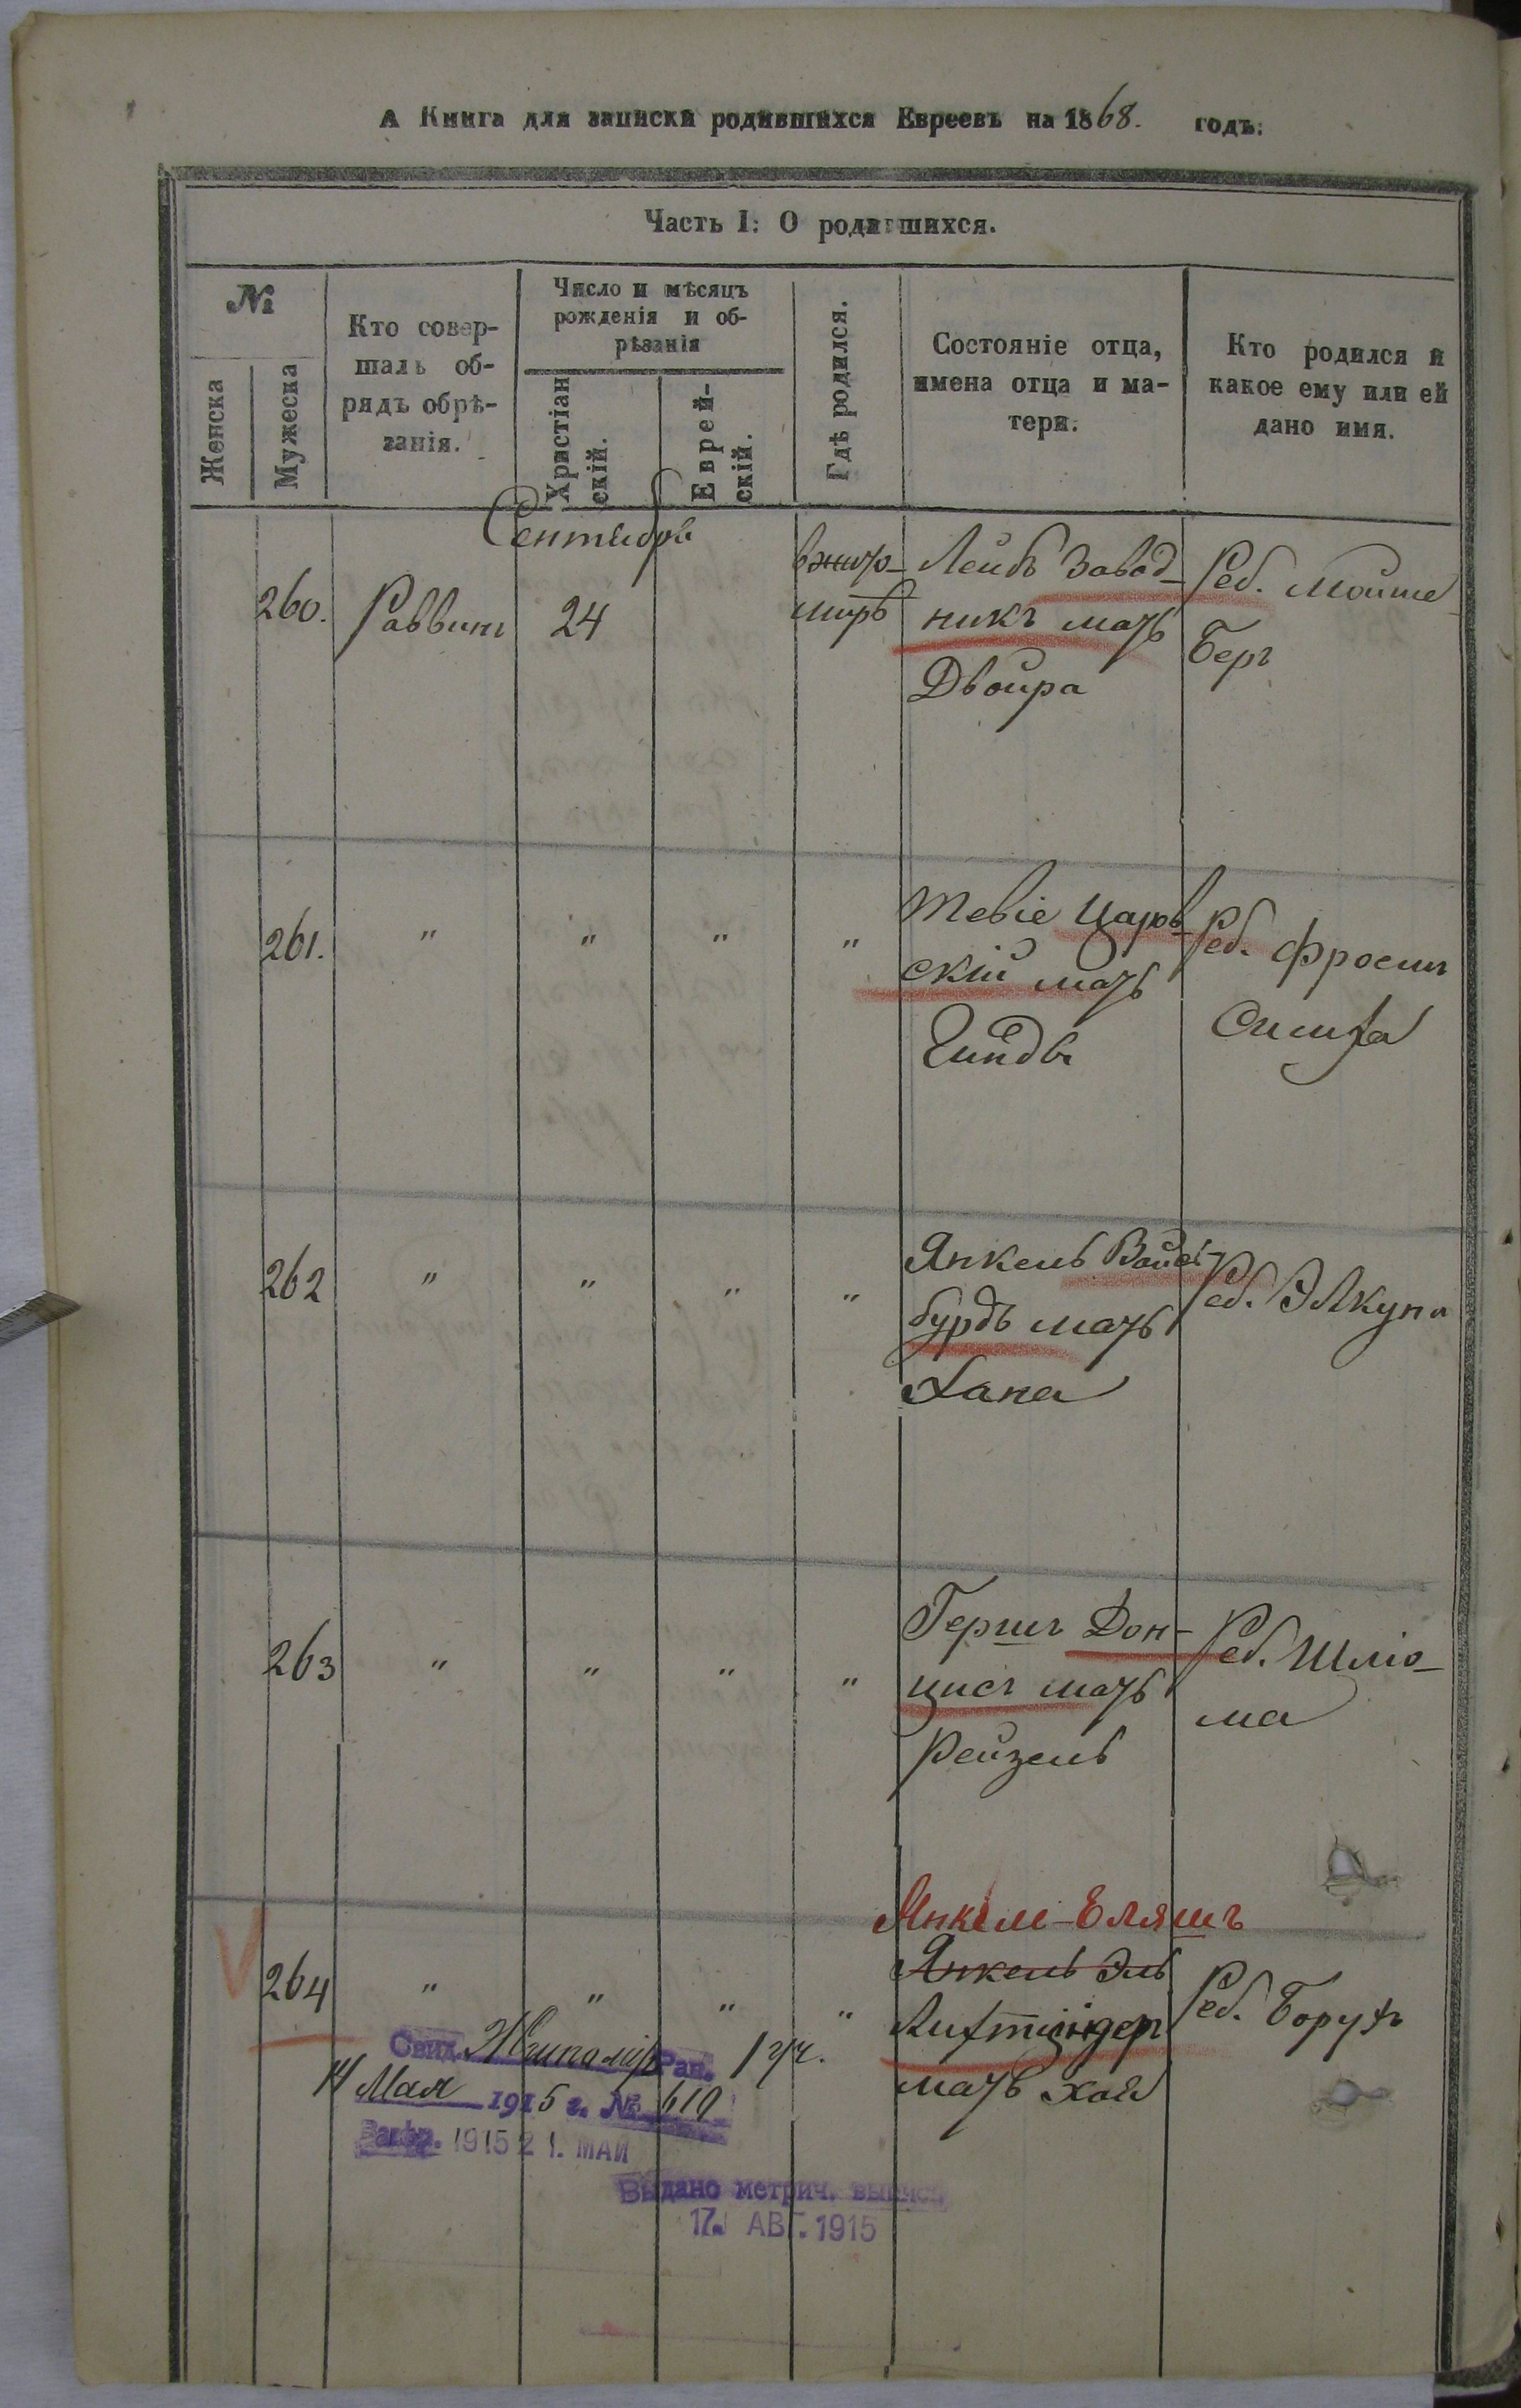 А Книга для записки родившихся Евреевъ на 1868. годъ:
Часть I: О родившихся.
№
Женска
Мужеска
Кто совер-
шалъ об-
рядъ обрѣ-
занія.
Число и мѣсяцъ
рожденія и об-
рѣзанія
Христіан
скій.
Еврей-
скій.
Гдѣ родился.
Состояніе отца,
имена отца и ма-
тери.
Кто родился и
какое ему или ей
дано имя.
Сентябрь
260. Раввинъ 24
Лейбъ Завод-
никъ мать
Двойра
Реб. Мойше
Беръ
261. " " " "
Тевіе Царов
скій мать
Гинда
Реб. Фроем
262 " " " "
Янкель Вайс
бурдъ мать
Хана
Реб. Элкуна
263 " " " "
Гершъ Дон-
цисъ мать
Рейзель
Реб. Шліо-
ма
Янкель-Еляшъ
264 " " " "
Янкель Эль
Лихтциндеръ
мать Хая
Реб. Борухъ
Свид. Житомір Рав. 1 уч.
14 Мая 1915 г. № 619
1915 21. МАЙ
Выдано метрич. выпись
17. АВГ. 1915